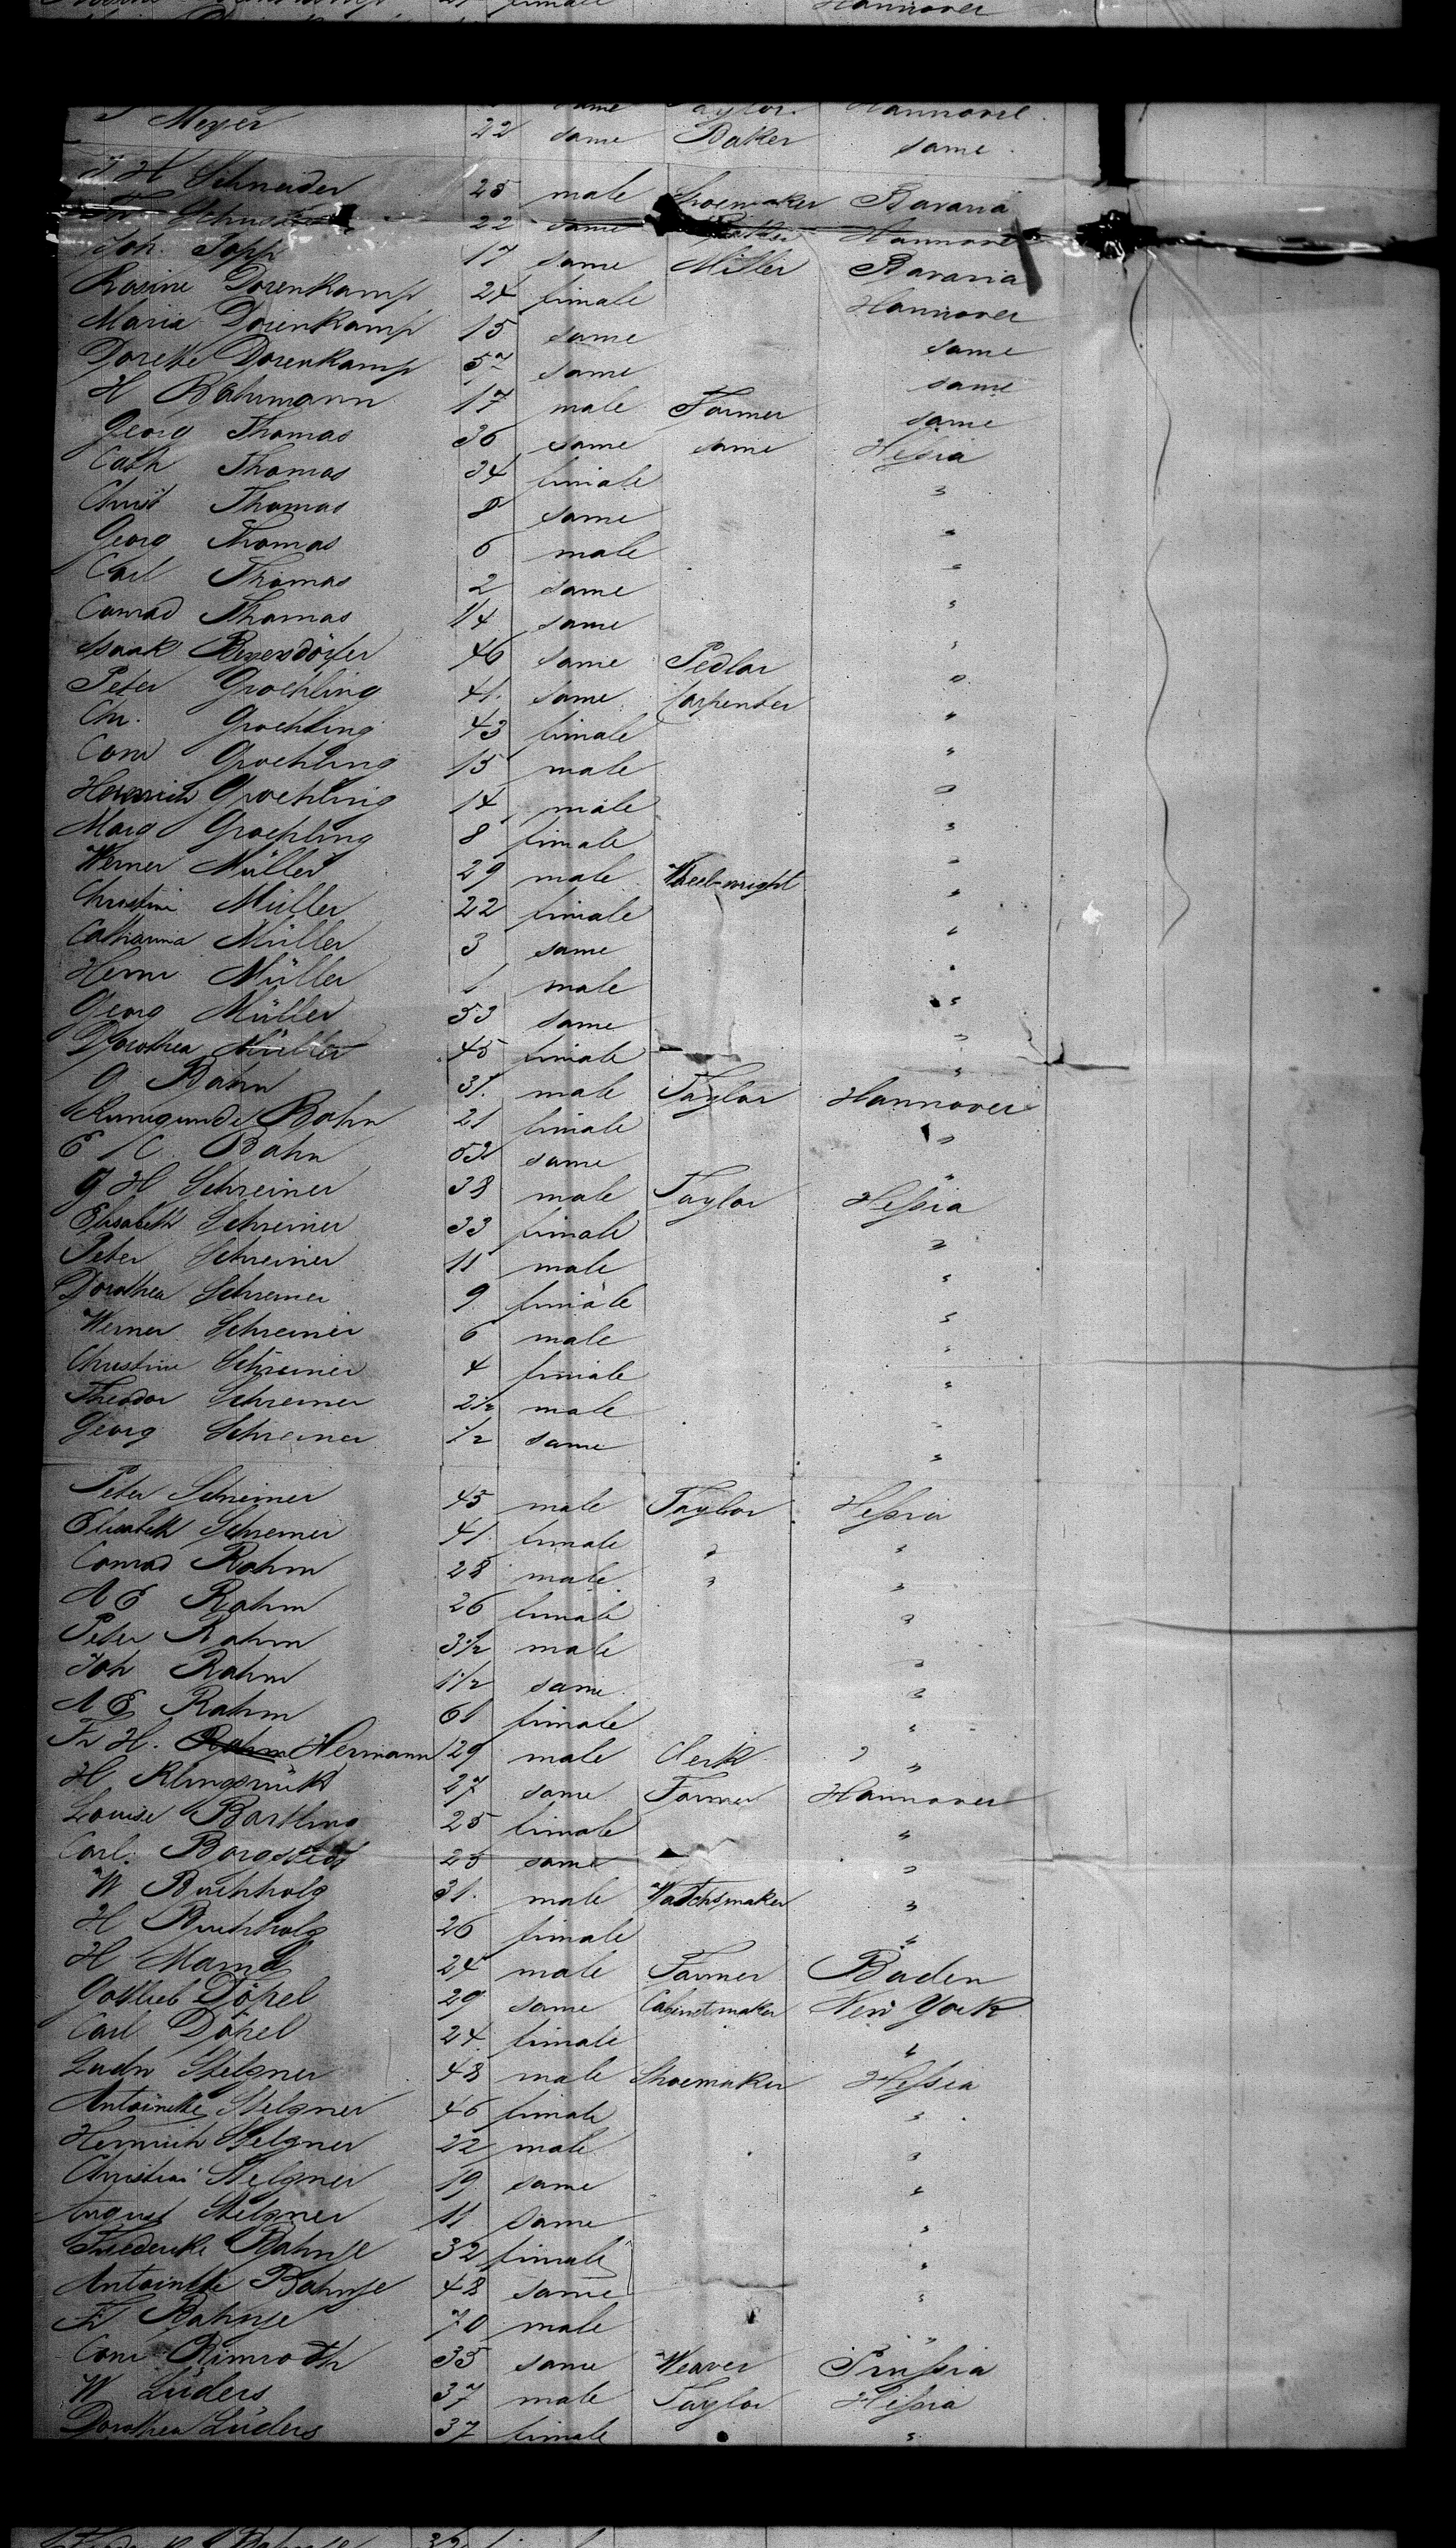 female Hannover
same Taylor. Hannover.
Meyer 22 same Baker same
J H Schneider 25 male Shoemaker Bavaria
22 same Hannover
Joh. Topp 17 same Miller Bavaria
Rosine Dorenkamp 24 female Hannover
Maria Dorenkamp 15 same same
Dorette Dorenkamp 57 same same
H Bahrmann 17 male Farmer same
Georg Thomas 36 same same Hessia
Cath Thomas 34 female "
Christ Thomas 8 same "
Georg Thomas 6 male "
Carl Thomas 2 same "
Conrad Thomas 1/4 same "
Isaak 46 same Pedlar "
Peter Groehling 41. same Carpenter "
Chr. Groehling 43 female "
Conr Groehling 15 male "
Heinrich Groehling 14 male "
Marg Groehling 8 female "
Werner Müller 29 male Wheel-wright "
Christine Müller 22 female "
Catharina Müller 3 same "
Henr Müller 1 male "
Georg Müller 53 same "
Dorothea Müller 45 female "
G Bahn 31. male Taylor Hannover
Kunigunde Bahn 21 female "
E C. Bahn 53 same "
G H Schreiner 38 male Taylor Hessia
Elisabeth Schreiner 33 female "
Peter Schreiner 11 male "
Dorothea Schreiner 9 female "
Werner Schreiner 6 male "
Christine Schreiner 4 female "
Theodor Schreiner 2 1/2 male "
Georg Schreiner 1/2 same "
Peter Schreiner 45 male Taylor Hessia
Elisabeth Schreiner 41 female " "
Conrad Rahm 28 male " "
A E Rahm 26 female "
Peter Rahm 3 1/2 male "
Joh Rahm 1 1/2 same "
A E Rahm 61 female "
Fr H. Rahm Hermann 29 male Clerk "
H 27 same Farmer Hannover
Louise Bartling 25 female "
Carl. Borgstedt 25 same "
W Buchholz 31. male Watchsmaker "
H Buchholz 26 female "
H 24 male Farmer Baden
Gottlieb Döpel 29 same Cabinetmaker New York
Carl Döpel 24. female "
Ludw Stelzner 48 male Shoemaker Hessia
Antoinette Stelzner 46 female "
Heinrich Stelzner 22 male "
Christian Stelzner 19 same "
August Stelzner 11 same "
Friederike Bahnse 32 female "
Antoinette Bahnse 48 same "
Fr Bahnse 70 male "
Conr Rimroth 35 same Weaver Prussia
W Lüders 37 male Taylor Hessia
Dorothea Lüders 37 female "